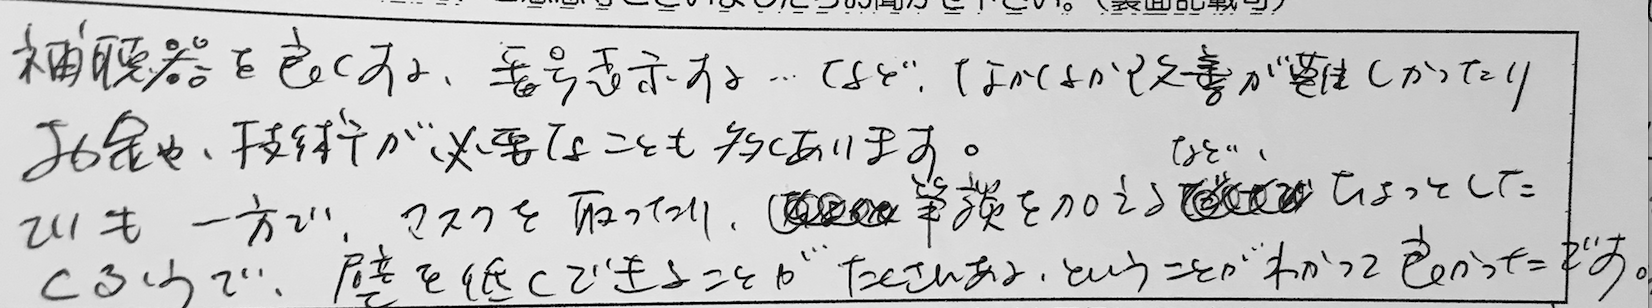 ございましたらお聞かせ下さい。(裏面記載可)
補聴器を良くする、番号表示する…など、なかなか改善が難しかったり
お金や、技術が必要なことも多くあります。
でも一方で、マスクを取ったり、筆談を加えるなど、ちょっとした
くふうで、壁を低くできることがたくさんある、ということがわかって良かったです。